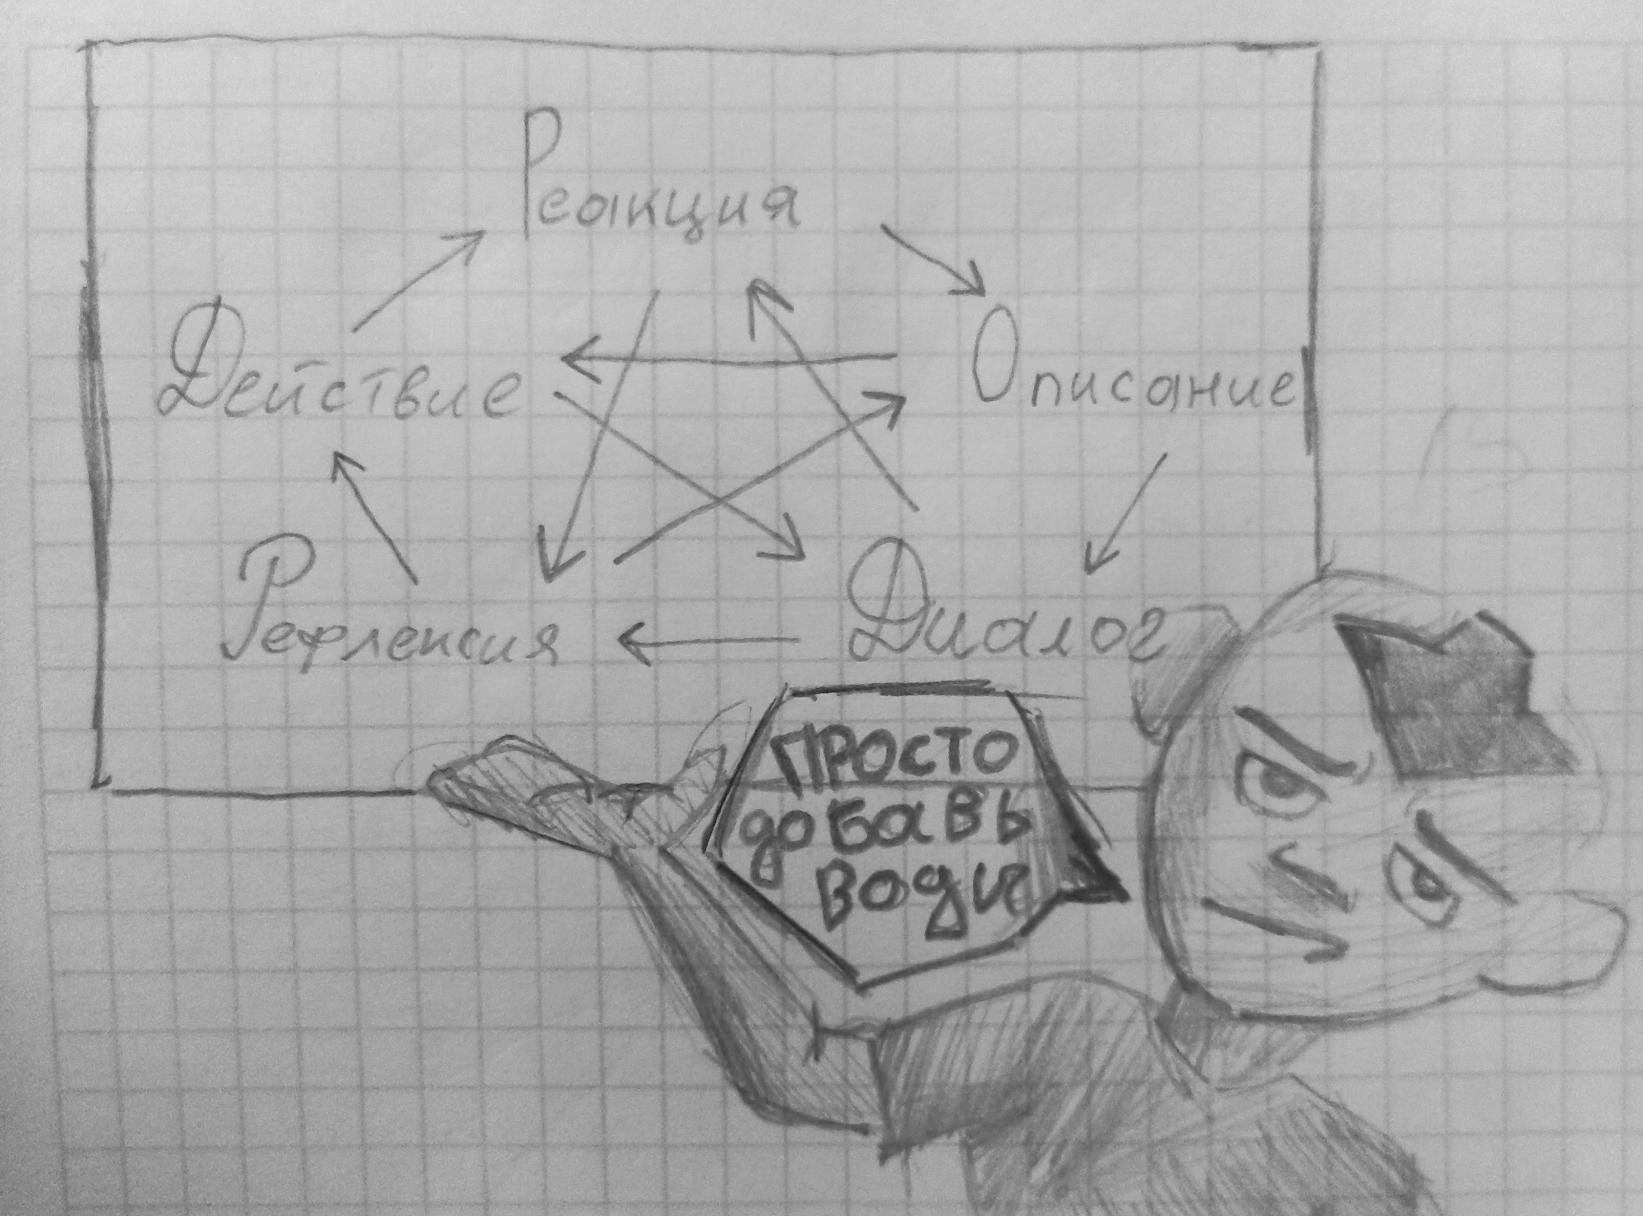 Реакция
Действие
Описание
Рефлексия
Диалог
ПРОСТО
добавь
воды